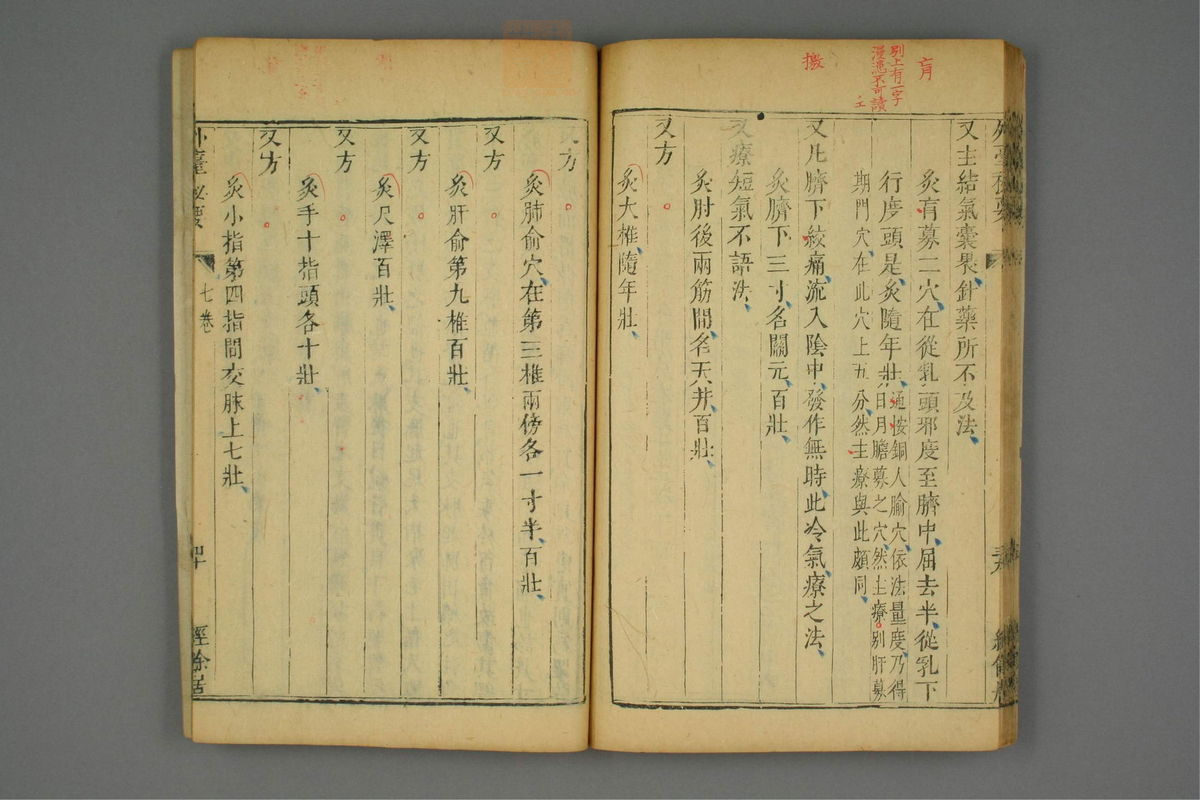 肓
別上有一字
漫滅不可讀
撥
又主結氣囊畏針藥所不及法
灸肓募二穴在從乳頭邪度至臍中屈去半從乳下
行度頭是灸隨年壯通按銅人腧穴依法量度乃得
日月膽募之穴然主療別肝募
期門穴在此穴上五分然主療與此頗同
又凡臍下絞痛流入陰中發作無時此冷氣療之法
灸臍下三寸名關元百壯
又療短氣不語法
灸肘後兩筋間名天井百壯
又方
灸大椎隨年壯
又方
灸肺俞穴在第三椎兩傍各一寸半百壯
又方
灸肝俞第九椎百壯
又方
灸尺澤百壯
又方
灸手十指頭各十壯
又方
灸小指第四指間交脉上七壯
外臺秘要
七卷
四十
經餘居